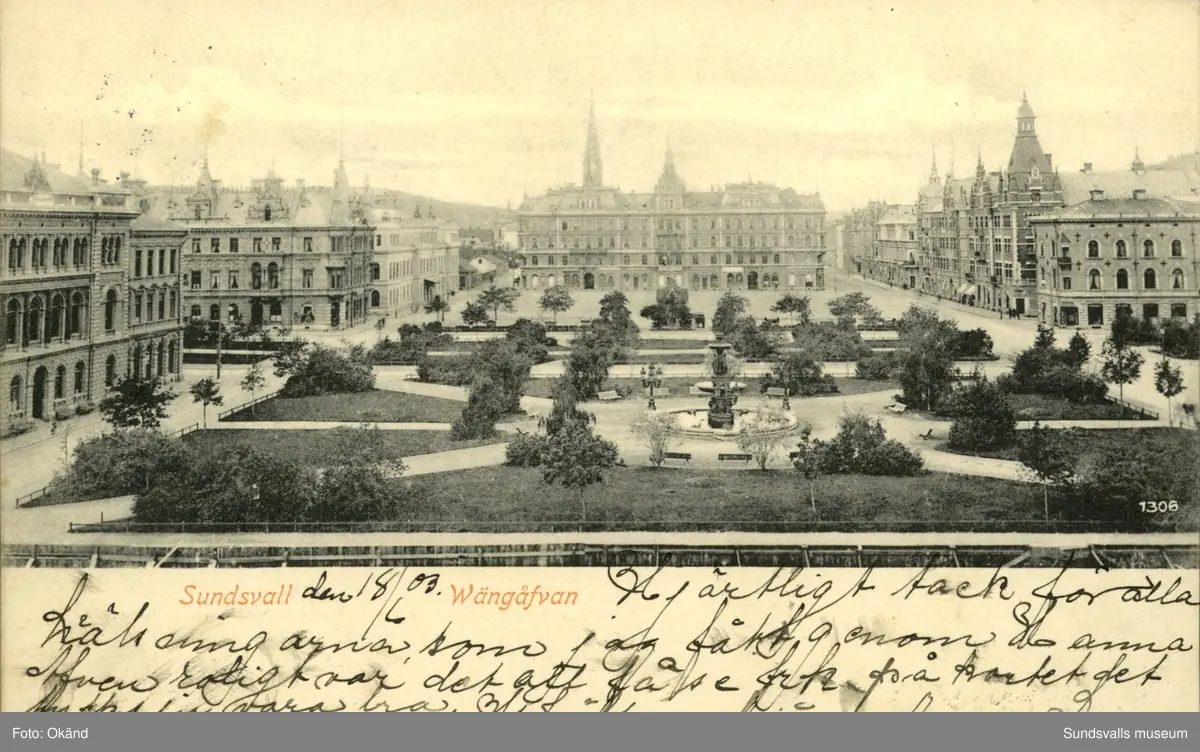 1306
Sundsvall den 18/6 03. Wängåfvan Hjärtligt tack för alla
hälsningarna, som jag fått genom Hanna
Även roligt var det att få se frk på kortet det
vara bra.
Foto: Okänd Sundsvalls museum